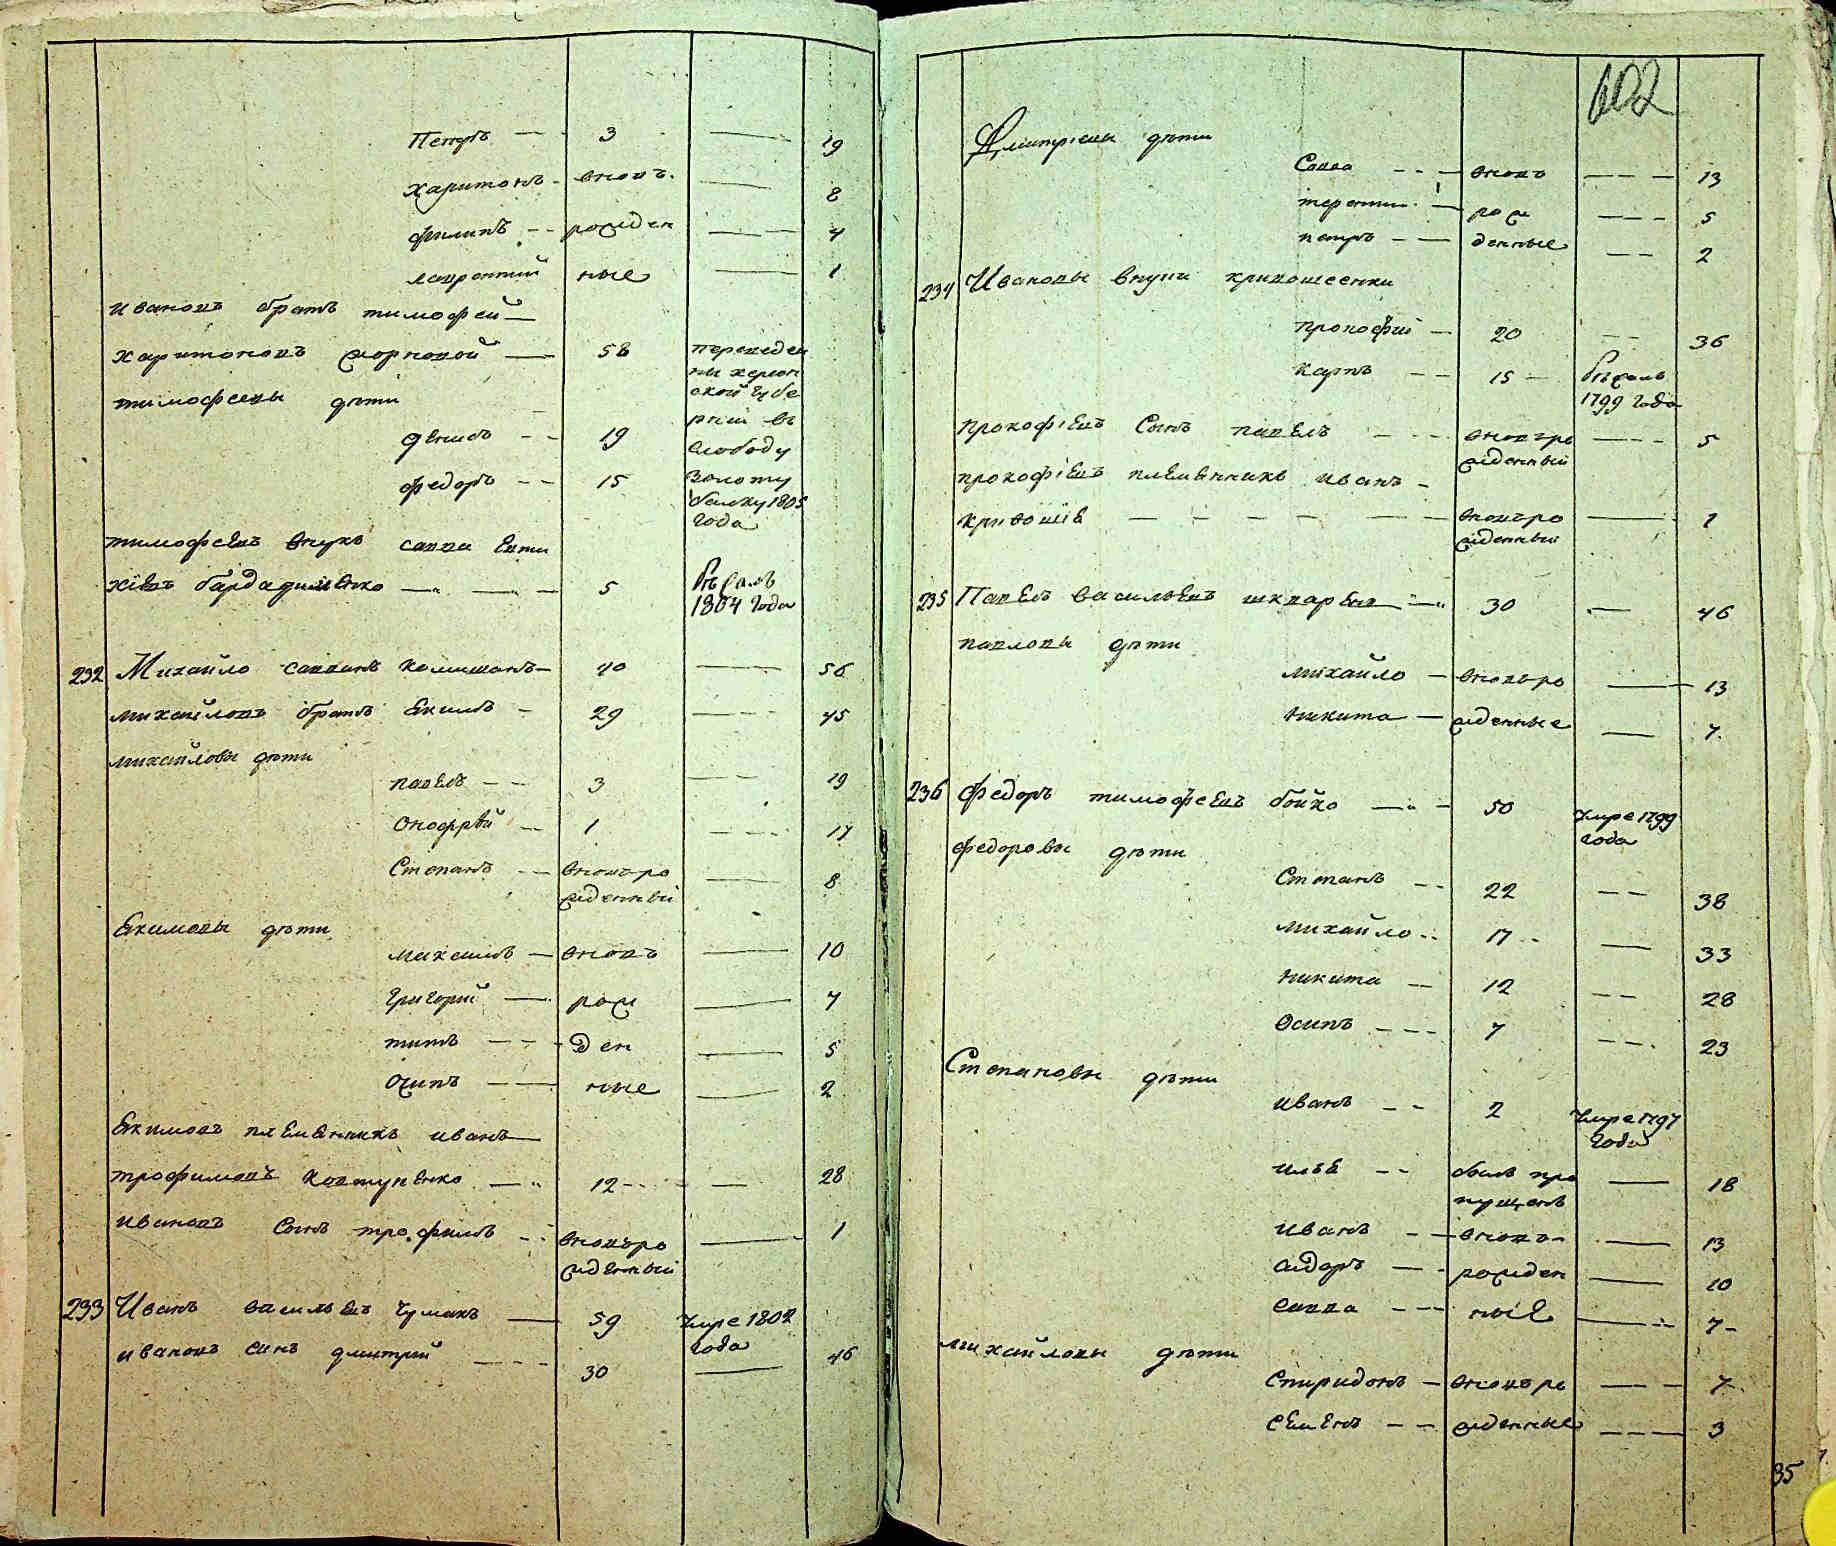 Петръ — 3 — 19
Харитонъ - вновь — 8
филипъ — рожден — 4
лаврентий ные — 1
Ивановъ братъ тимофей —
Харитоновъ — 58 переведен
ны херсон
ской губе
тимофеевы дѣти
рнии въ
денисъ — 19 слободу
федоръ — 15 золоту
балку 1805
года
тимофеевъ внукъ савва Евти
хіевъ — 5 бѣжалъ
1804 года
232 Михайло саввинъ — 40 — 56
михайловъ братъ Екимъ — 29 — 45
михайловы дѣти
павелъ — 3 — 19
Онофрѣй — 1 — 17
Степанъ — вновьро — 8
жденный
Екимовы дѣти
максимъ — вновь — 10
григорий — рож — 7
титъ — ден — 5
Осипъ — ные — 2
Екимовъ племѣнникъ иванъ —
трофимовъ Ковтуненко — 12 — 28
ивановъ Сынъ трофимъ — вновьро — 1
жденный
233 Иванъ васильевъ Чумакъ — 59 умре 1802
года
ивановъ синъ дмитрий — 30 — 46
602
Дмитріевы дѣти
Савва — вновь — 13
терентий — рож — 5
петръ — денные — 2
234 Ивановы внуки кривошеенки
прокофий — 20 — 36
карпъ — 15 — бѣжалъ
1799 года
прокофіевъ Сынъ павелъ — вновьро — 5
жденный
прокофіевъ племѣнникъ иванъ -
кривошіѣ — вновьро — 1
жденный
235 Павелъ васильевъ — 30 — 46
павловы дѣти
михайло — вновьро — 13
никита — жденные — 7
236 федоръ тимофеевъ бойко — 50 умре 1799
года
федоровы дѣти
Степанъ — 22 — 38
михайло — 17 — 33
никита — 12 — 28
Осипъ — 7 — 23
Степановы дѣти
иванъ — 2 умре 1797
года
илья — былъ про — 18
пущенъ
иванъ — вновь — 13
сидоръ — рожден — 10
савва — ные — 7
михайловы дѣти
Спиридонъ — вновьро — 7
семенъ — жденные — 3
35